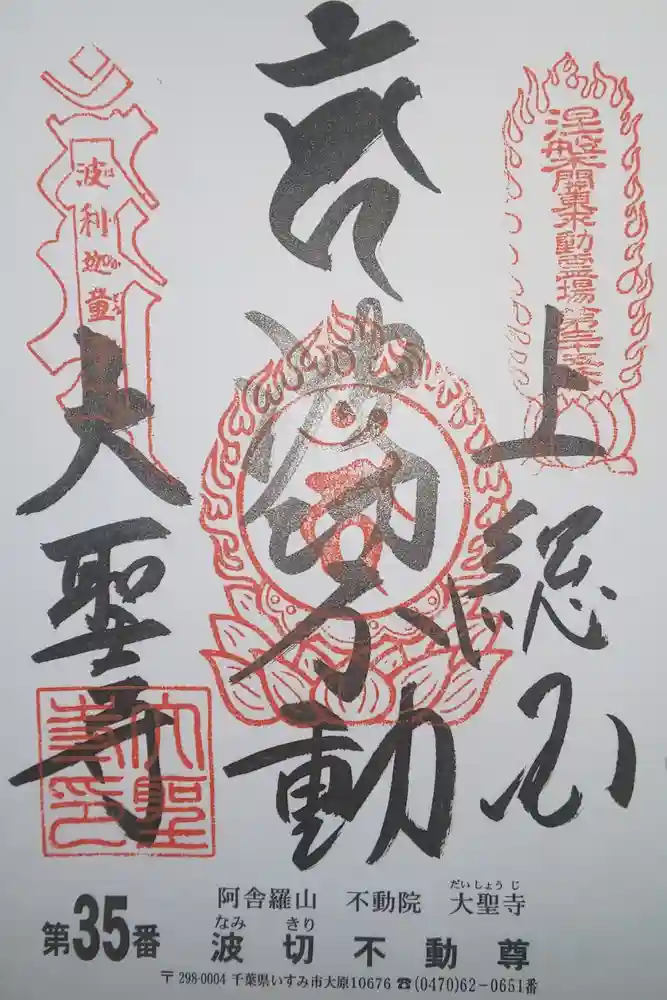 涅槃関東不動霊場第三十五番
上総国
波切不動
波利迦童
大聖寺
阿舎羅山 不動院 大聖寺
だいしょうじ
第35番
なみ きり
波切不動尊
〒298-0004 千葉県いすみ市大原10676 ☎(0470)62-0651番